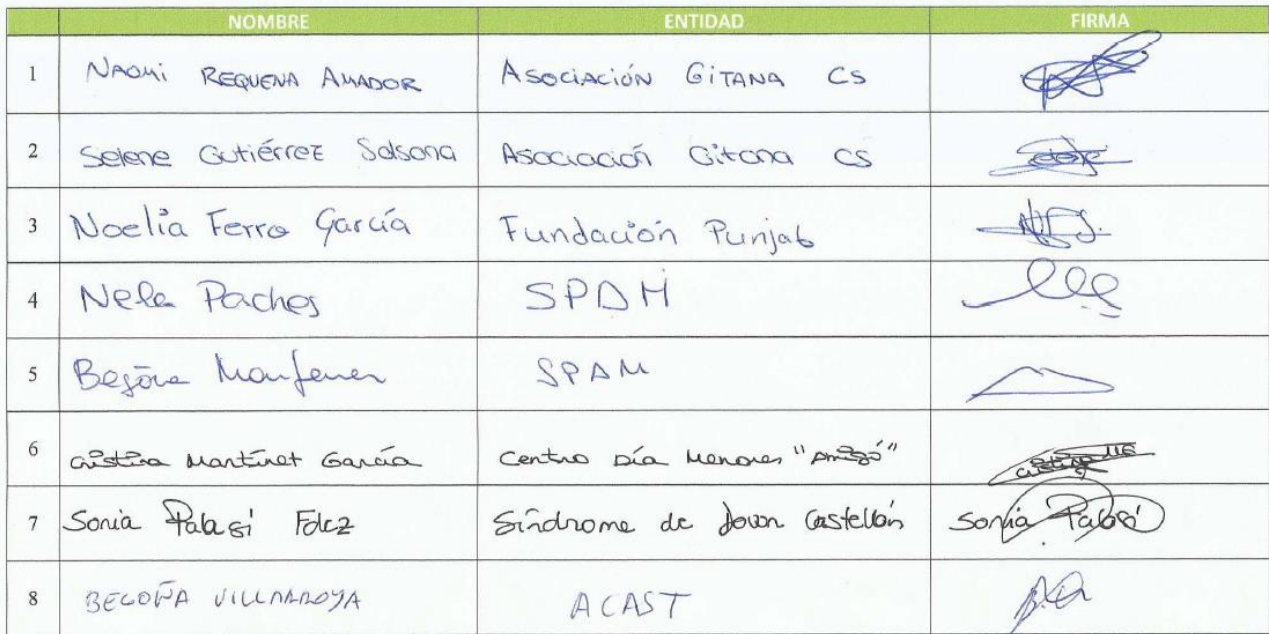 NOMBRE ENTIDAD FIRMA
1 NAOMI REQUENA AMADOR ASOCIACIÓN GITANA CS
2 Selene Gutiérrez Solsona Asociación Gitana CS
3 Noelia Ferro García Fundación Punjab N.F.G.
4 Nela Paches SPAM
5 Begoña Monferrer SPAM
6 Cristina Martínez García Centro Día Menores "Amigó" Cristina MG
7 Sonia Palasí Fdez Síndrome de Down Castellón Sonia Palasí
8 BEGOÑA VILLARROYA ACAST